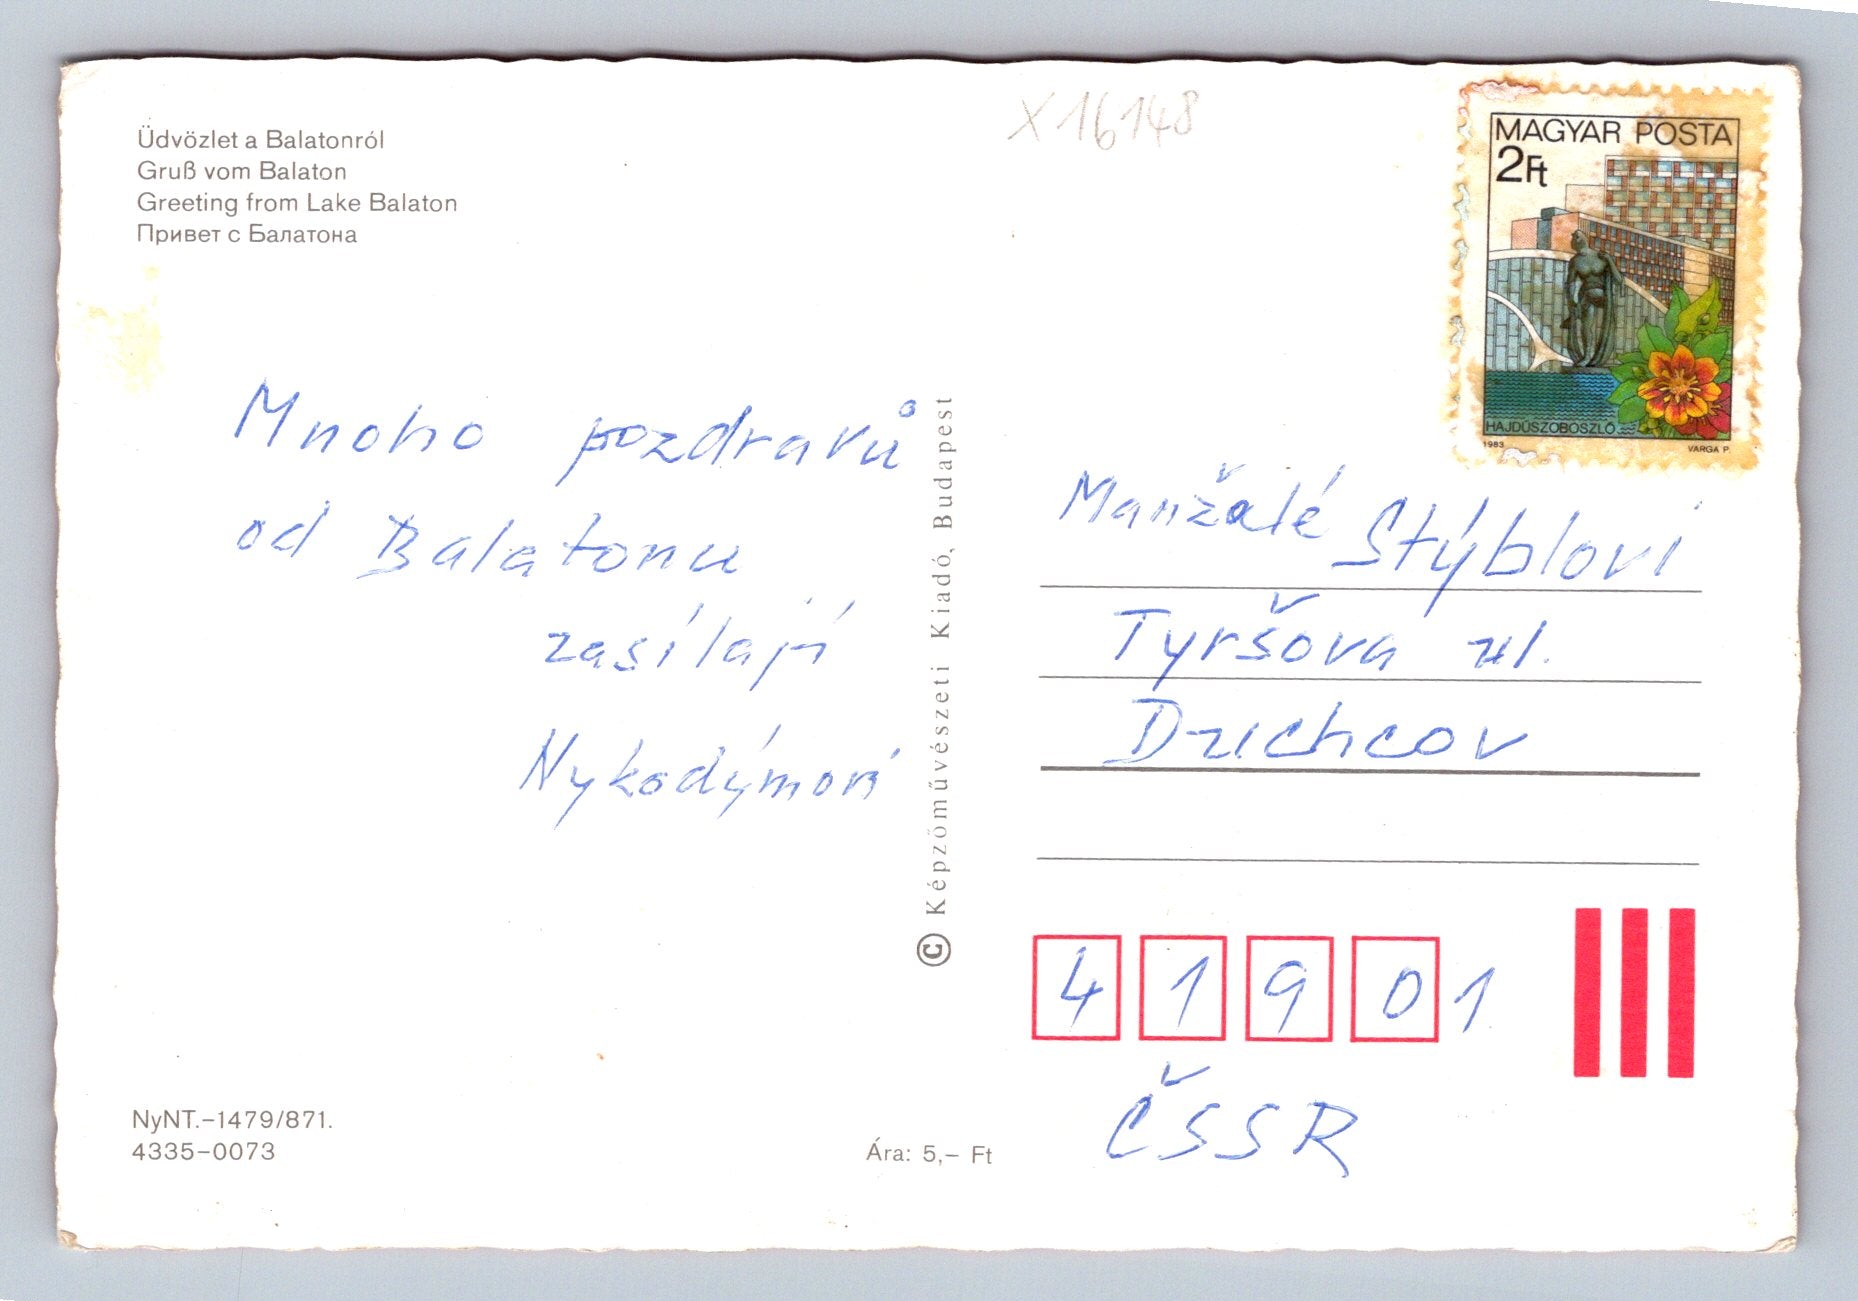 Üdvözlet a Balatonról
Gruß vom Balaton
Greeting from Lake Balaton
Привет с Балатона
X16148
MAGYAR POSTA
2Ft
HAJDÚSZOBOSZLÓ
1983 VARGA P.
Mnoho pozdravů
od Balatonu
zasílají
Nykodýmovi
© Képzőművészeti Kiadó, Budapest
Manžalé Stýblovi
Tyršova ul.
Duchcov
41901
ČSSR
NyNT.–1479/871.
4335–0073
Ára: 5,– Ft